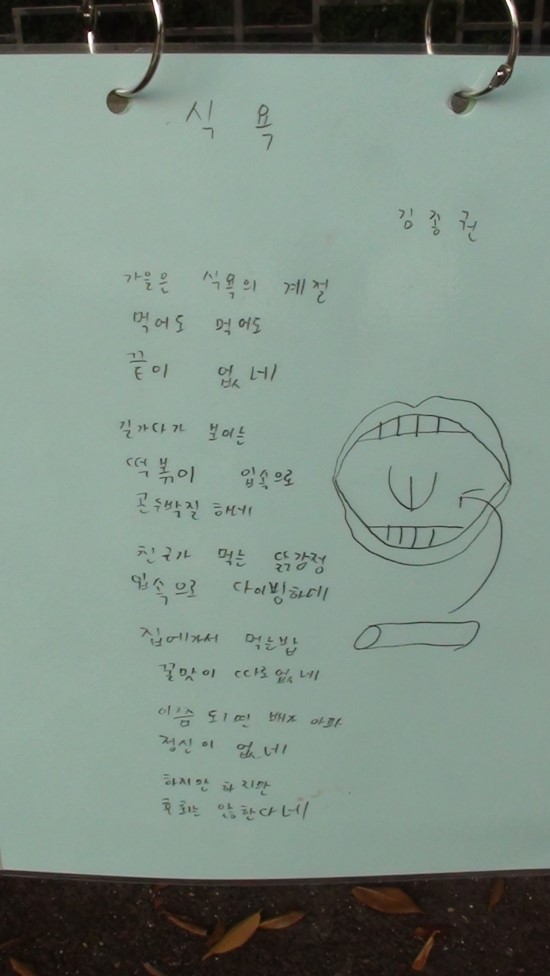 식 욕
김종권
가을은 식욕의 계절
먹어도 먹어도
끝이 없네
길가다가 보이는
떡볶이 입속으로
곤두박질 하네
친구가 먹는 닭강정
입속으로 다이빙하네
집에가서 먹는밥
꿀맛이 따로없네
이쯤 되면 배가 아파
정신이 없네
하지만 하지만
후회는 않한다네